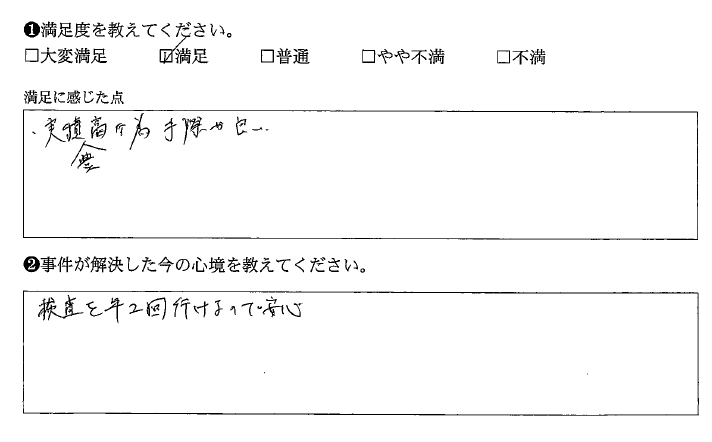 ❶満足度を教えてください。
□大変満足 ☑満足 □普通 □やや不満 □不満
満足に感じた点
・実績 豊
❷事件が解決した今の心境を教えてください。
検査を年2回行けるので安心